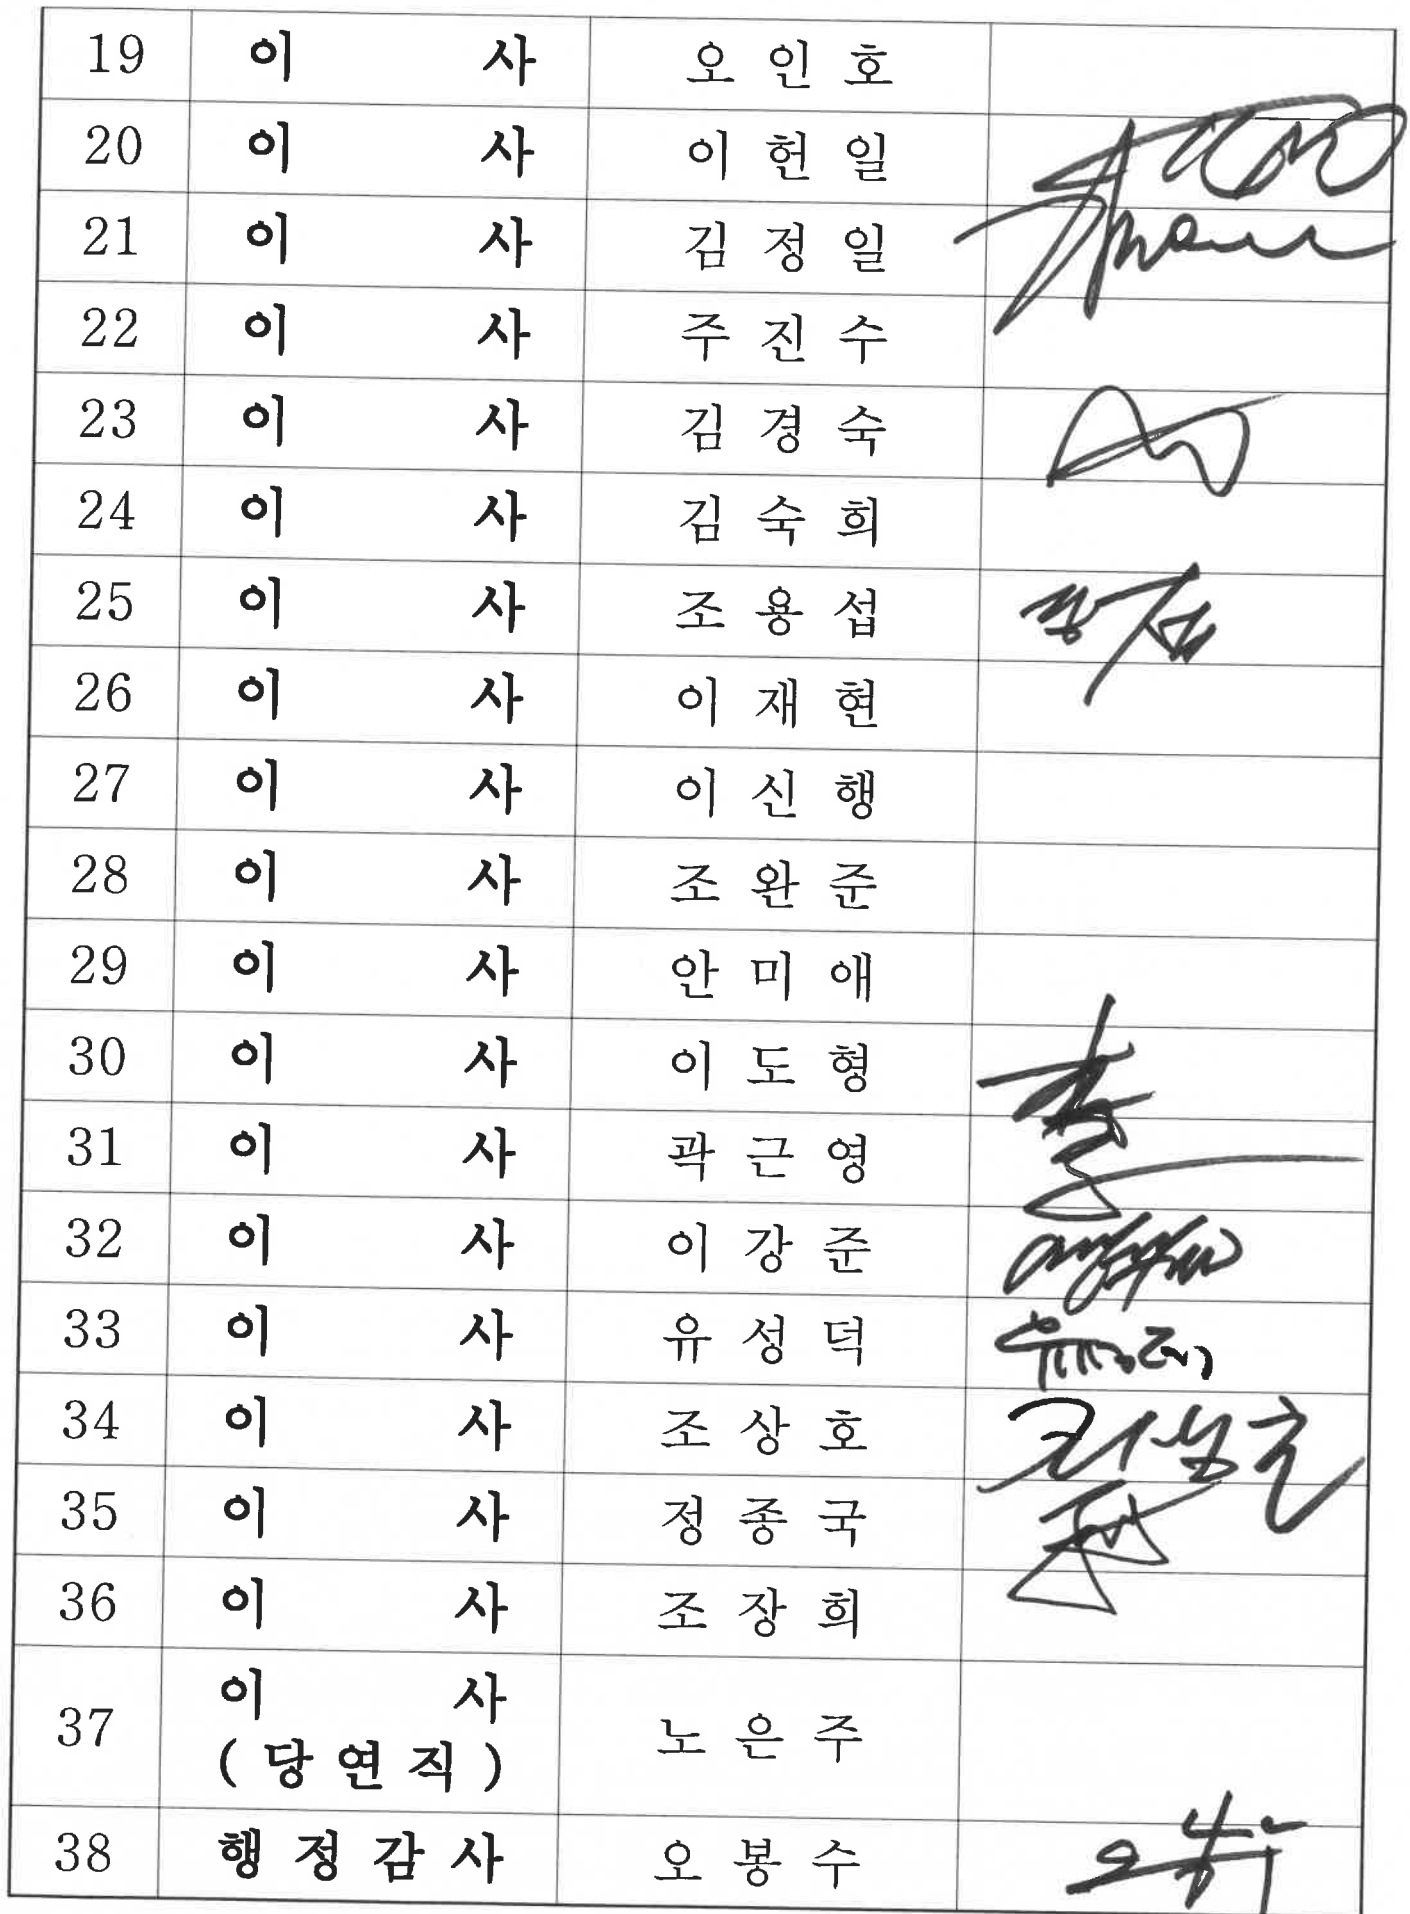 19 이 사 오인호
20 이 사 이헌일
21 이 사 김정일
22 이 사 주진수
23 이 사 김경숙
24 이 사 김숙희
25 이 사 조용섭
26 이 사 이재현
27 이 사 이신행
28 이 사 조완준
29 이 사 안미애
30 이 사 이도형
31 이 사 곽근영
32 이 사 이강준
33 이 사 유성덕
34 이 사 조상호 조상호
35 이 사 정종국
36 이 사 조장희
37 이 사 노은주
(당연직)
38 행정감사 오봉수